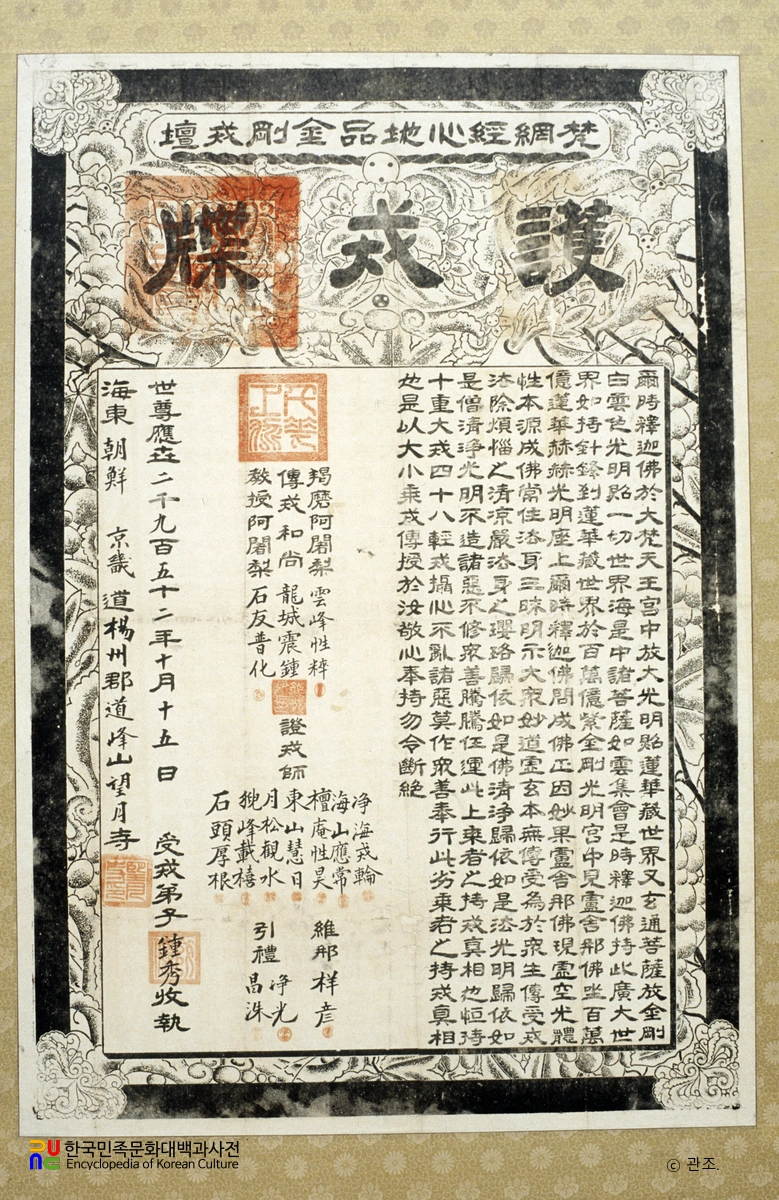 梵網經心地品金剛戒壇
護戒牒
爾時釋迦佛於大梵天王宮中放大光明照蓮華藏世界又玄通菩薩放金剛
白雲色光明照一切世界海是中諸菩薩如雲集會是時釋迦佛持此廣大世
界如持針鋒到蓮華藏世界於百萬億紫金剛光明宮中見盧舍那佛坐百萬
億蓮華赫赫光明座上爾時釋迦佛問成佛正因妙果盧舍那佛現虛空光體
性本源成佛常住法身三昧明示大衆妙道虛玄本無傳受為於衆生傳受戒
法除煩惱之清凉嚴法身之瓔珞歸依如是佛清淨歸依如是法光明歸依如
是僧清淨光明不造諸惡不修衆善騰騰任運此上乘者之持戒真相也恒持
十重大戒四十八輕戒攝心不亂諸惡莫作衆善奉行此劣乘者之持戒真相
也是以大小乘戒傳授於汝敬心奉持勿令斷絶
羯磨阿闍梨 雲峰性粹
傳戒和尚 龍城震鍾
教授阿闍梨 石友普化
證戒師
净海戒輪
海山應常
檀庵性昊
東山慧日
月松觀水
猊峰載禧
石頭厚根
維那 祥彦
引禮 净光
昌洙
世尊應世二千九百五十二年十月十五日 受戒弟子 鍾秀 收執
海東朝鮮 京畿道楊州郡道峰山望月寺
한국민족문화대백과사전
Encyclopedia of Korean Culture
© 관조.